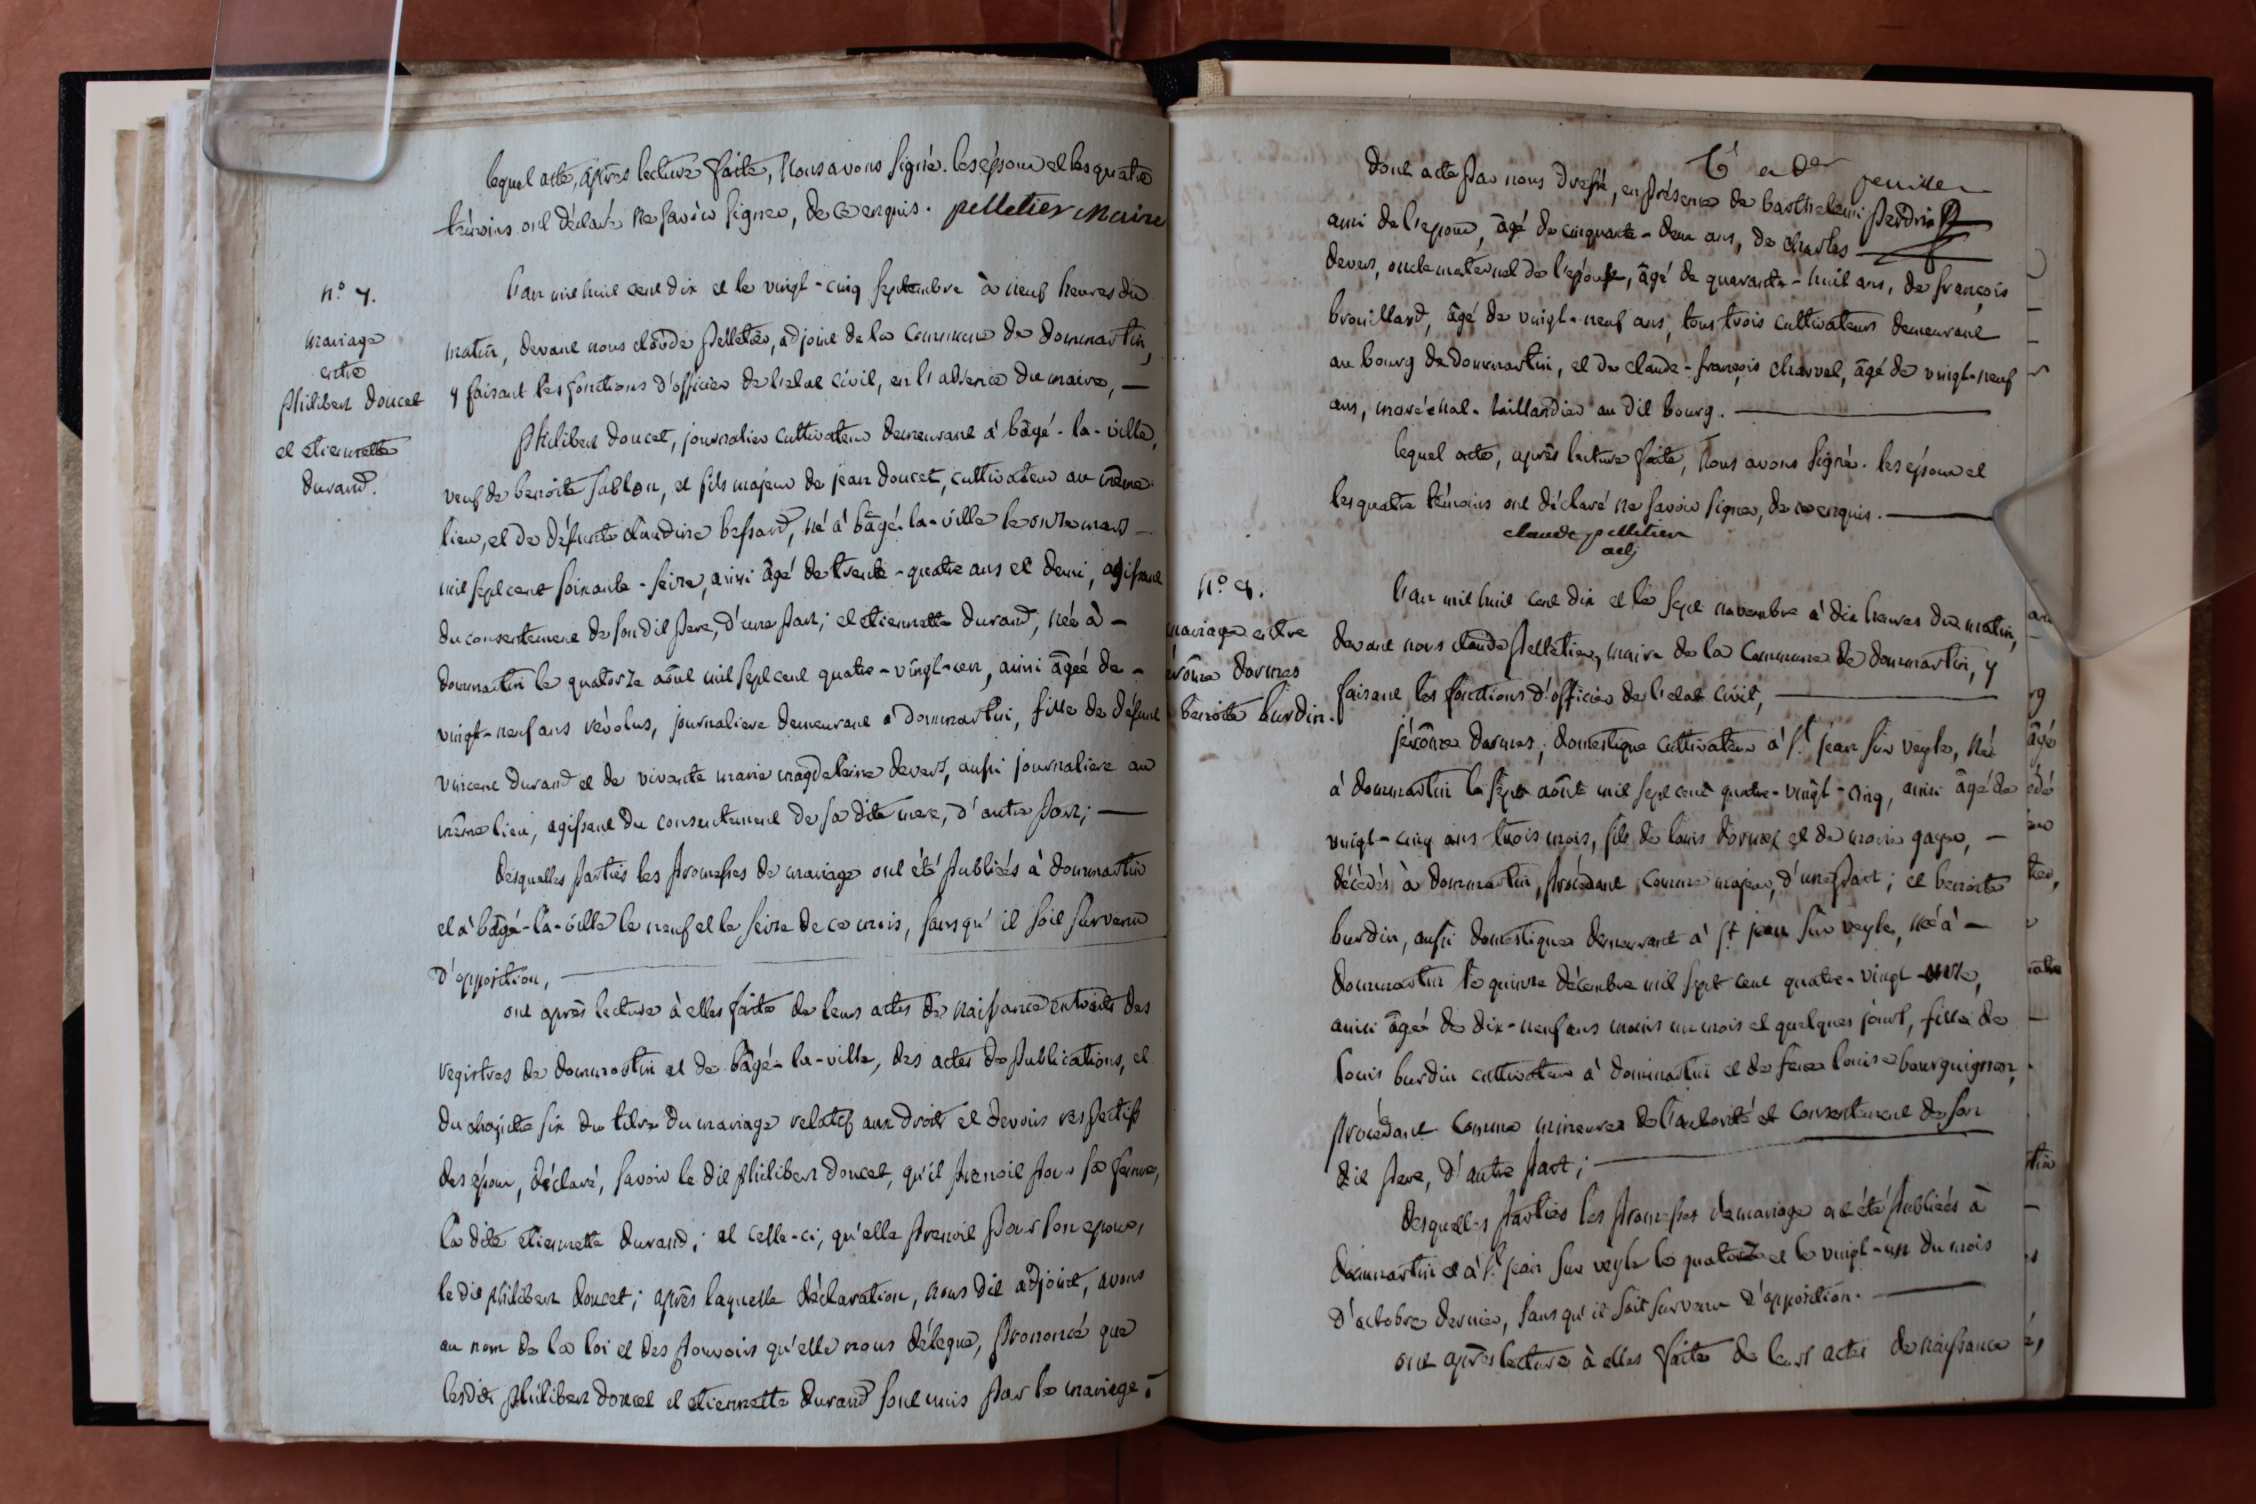 lequel acte, après lecture faite, Nous avons signé. les époux et les quatre
témoins ont déclaré ne savoir signer, de ce enquis. pelletier maire
n.º 7.
mariage
entre
philibert doucet
et etiennette
durand.
l'an mil huit cent dix et le vingt-cinq septembre à neuf heures du
matin, devant nous claude pelletier, adjoint de la commune de dommartin,
y faisant les fonctions d'officier de l'etat civil, en l'absence du maire, —
philibert doucet, journalier cultivateur demeurant à bâgé-la-ville,
veuf de benoite sablon, et fils majeur de jean doucet, cultivateur au même
lieu, et de défunte claudine bessard, né à bâgé-la-ville le onze mars —
mil sept cent soixante-seize, ainsi âgé de trente-quatre ans et demi, agissant
du consentement de son dit pere, d'une part; et etiennette durand, née à —
dommartin le quatorze août mil sept cent quatre-vingt-un, ainsi âgée de —
vingt-neuf ans révolus, journaliere demeurant à dommartin, fille de défunt
vincent durand et de vivante marie magdelaine devers, aussi journaliere au
même lieu, agissant du consentement de sa dite mere, d'autre part; —
desquelles parties les promesses de mariage ont été publiées à dommartin
et à bâgé-la-ville le neuf et le seize de ce mois, sans qu'il soit survenu
d'opposition, —
ont après lecture à elles faite de leurs actes de naissance extraits des
registres de dommartin et de bâgé-la-ville, des actes de publications, et
du chapitre six du titre du mariage relatif aux droits et devoirs respectifs
des époux, déclaré, savoir le dit philibert doucet, qu'il prenoit pour sa femme,
la dite etiennette durand; et celle-ci, qu'elle prenoit pour son epoux,
le dit philibert doucet; après laquelle déclaration, nous dit adjoint, avons
au nom de la loi et des pouvoirs qu'elle nous délegue, prononcé que
lesdits philibert doucet et etiennette durand sont unis par le mariage;
feuillet
dont acte par nous dressé, en présence de barthelemi perdrix
ami de l'epoux, âgé de cinquante-deux ans, de charles —
devers, oncle maternel de l'épouse, âgé de quarante-huit ans, de françois
brouillard, âgé de vingt-neuf ans, tous trois cultivateurs demeurant
au bourg de dommartin, et de claude-françois charvet, âgé de vingt-neuf
ans, maréchal-taillandier au dit bourg. —
lequel acte, après lecture faite, Nous avons signé. les époux et
les quatre témoins ont déclaré ne savoir signer, de ce enquis. —
claude pelletier
adj
n.º 8.
mariage entre
jérôme dormes
benoite burdin.
l'an mil huit cent dix et le sept novembre à dix heures du matin,
devant nous claude pelletier, maire de la commune de dommartin, y
faisant les fonctions d'officier de l'etat civil, —
jérôme dormes, domestique cultivateur à s.t jean sur veyle, né
à dommartin le sept août mil sept cent quatre-vingt-cinq, ainsi âgé de
vingt-cinq ans trois mois, fils de louis dormes et de marie gayes, —
décédés à dommartin, procédant comme majeur, d'une part; et benoite
burdin, aussi domestique demeurant à s.t jean sur veyle, née à —
dommartin le quinze décembre mil sept cent quatre-vingt-onze,
ainsi âgée de dix-neuf ans moins un mois et quelques jours, fille de
louis burdin cultivateur à dommartin et de feue louise bourguignon,
procédant comme mineure de l'autorité et consentement de son
dit pere, d'autre part; —
desquelles parties les promesses de mariage ont été publiées à
dommartin et à s.t jean sur veyle le quatorze et le vingt-un du mois
d'octobre dernier, sans qu'il soit survenu d'opposition. —
ont après lecture à elles faite de leurs actes de naissance